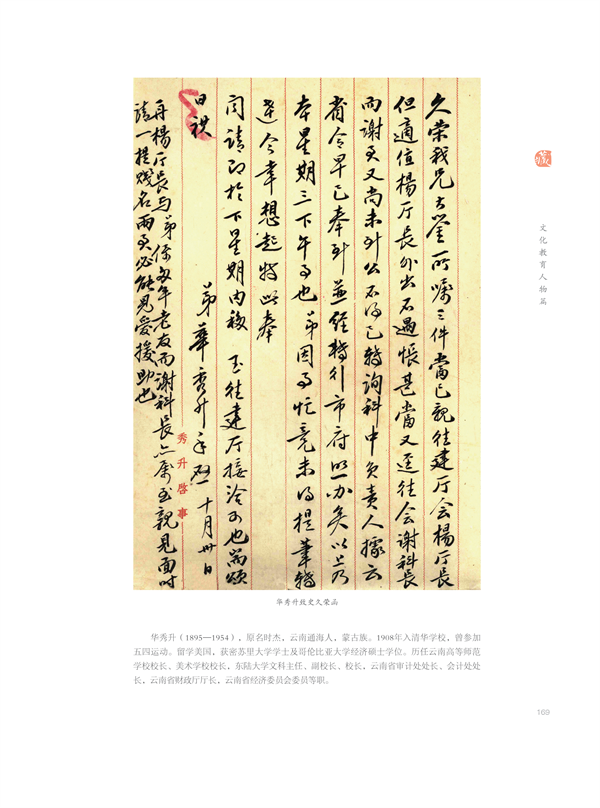 久荣我兄大鉴所嘱三件当已亲往建厅会杨厅长
但适值杨厅长外出不遇怅甚当又迳往会谢科长
而谢君又尚未到公不得已转询科中负责人据云
省令早已奉到并经转行市府照办矣以上乃
本星期三下午事也弟因事忙竟未得提笔转
达今幸想起特此奉
闻请即于下星期内移玉往建厅接洽可也耑颂
日祺
弟华秀升手启十月卅日
再杨厅长与弟系多年老友而谢科长亦属至亲见面时
请一提贱名两君必能见爱援助也
秀升启事
文化教育人物篇
华秀升致史久荣函
华秀升（1895—1954），原名时杰，云南通海人，蒙古族。1908年入清华学校，曾参加
五四运动。留学美国，获密苏里大学学士及哥伦比亚大学经济硕士学位。历任云南高等师范
学校校长、美术学校校长，东陆大学文科主任、副校长、校长，云南省审计处处长、会计处处
长，云南省财政厅厅长，云南省经济委员会委员等职。
169